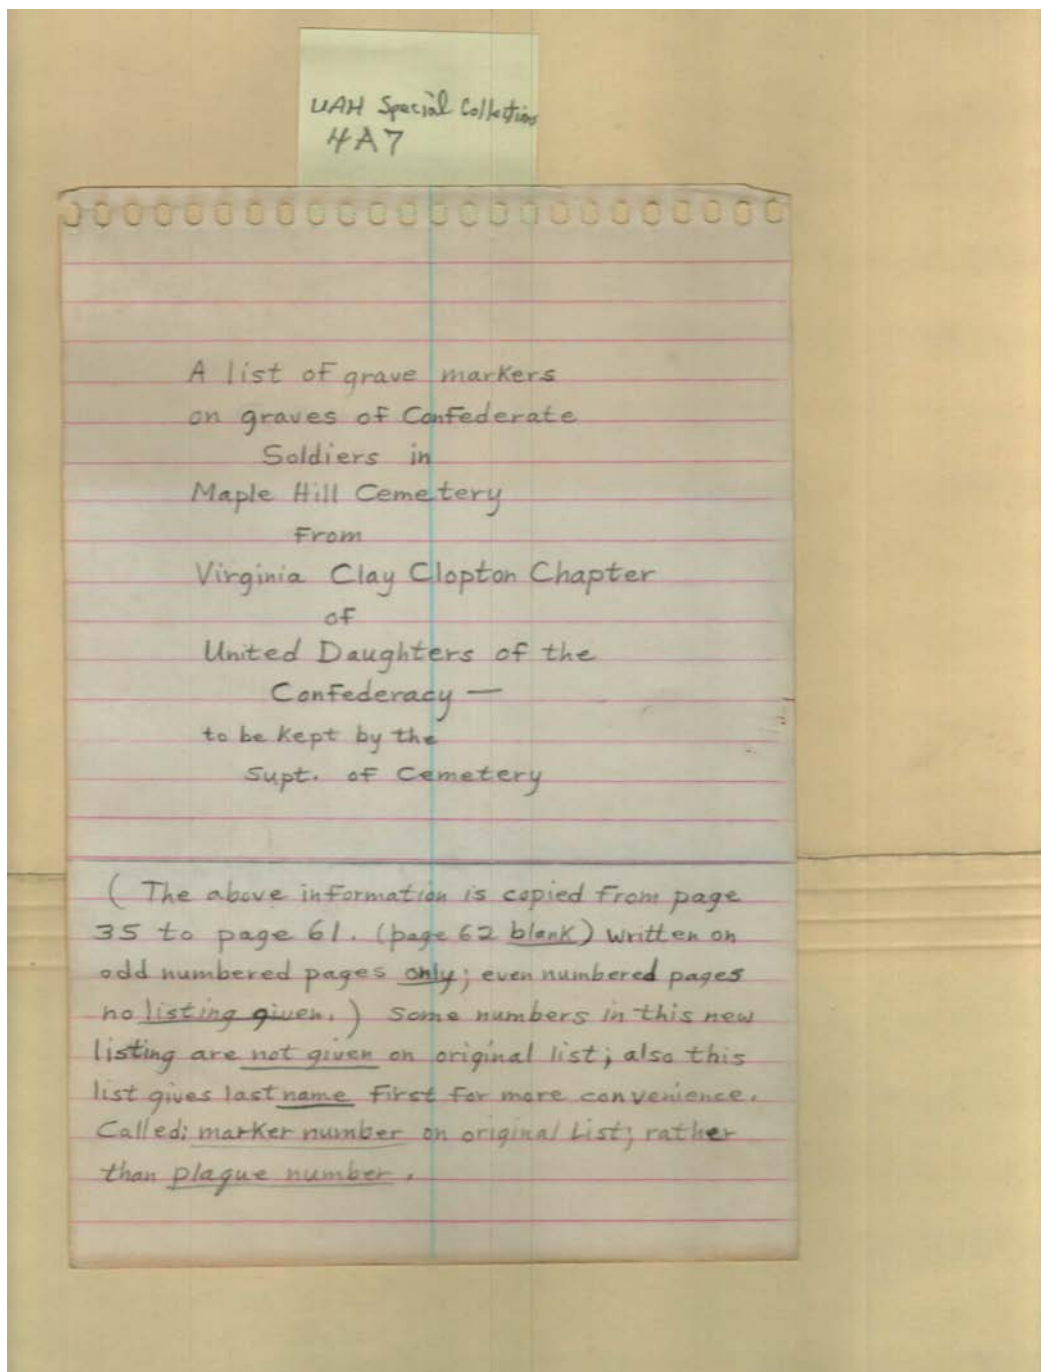 UAH Special Collections
4A7
A list of grave markers
on graves of Confederate
Soldiers in
Maple Hill Cemetery
From
Virginia Clay Clopton Chapter
of
United Daughters of the
Confederacy —
to be kept by the
Supt. of Cemetery
( The above information is copied from page
35 to page 61. (page 62 blank) written on
odd numbered pages only; even numbered pages
no listing given. ) Some numbers in this new
listing are not given on original list; also this
list gives last name first for more convenience.
Called: marker number on original List; rather
than plaque number.